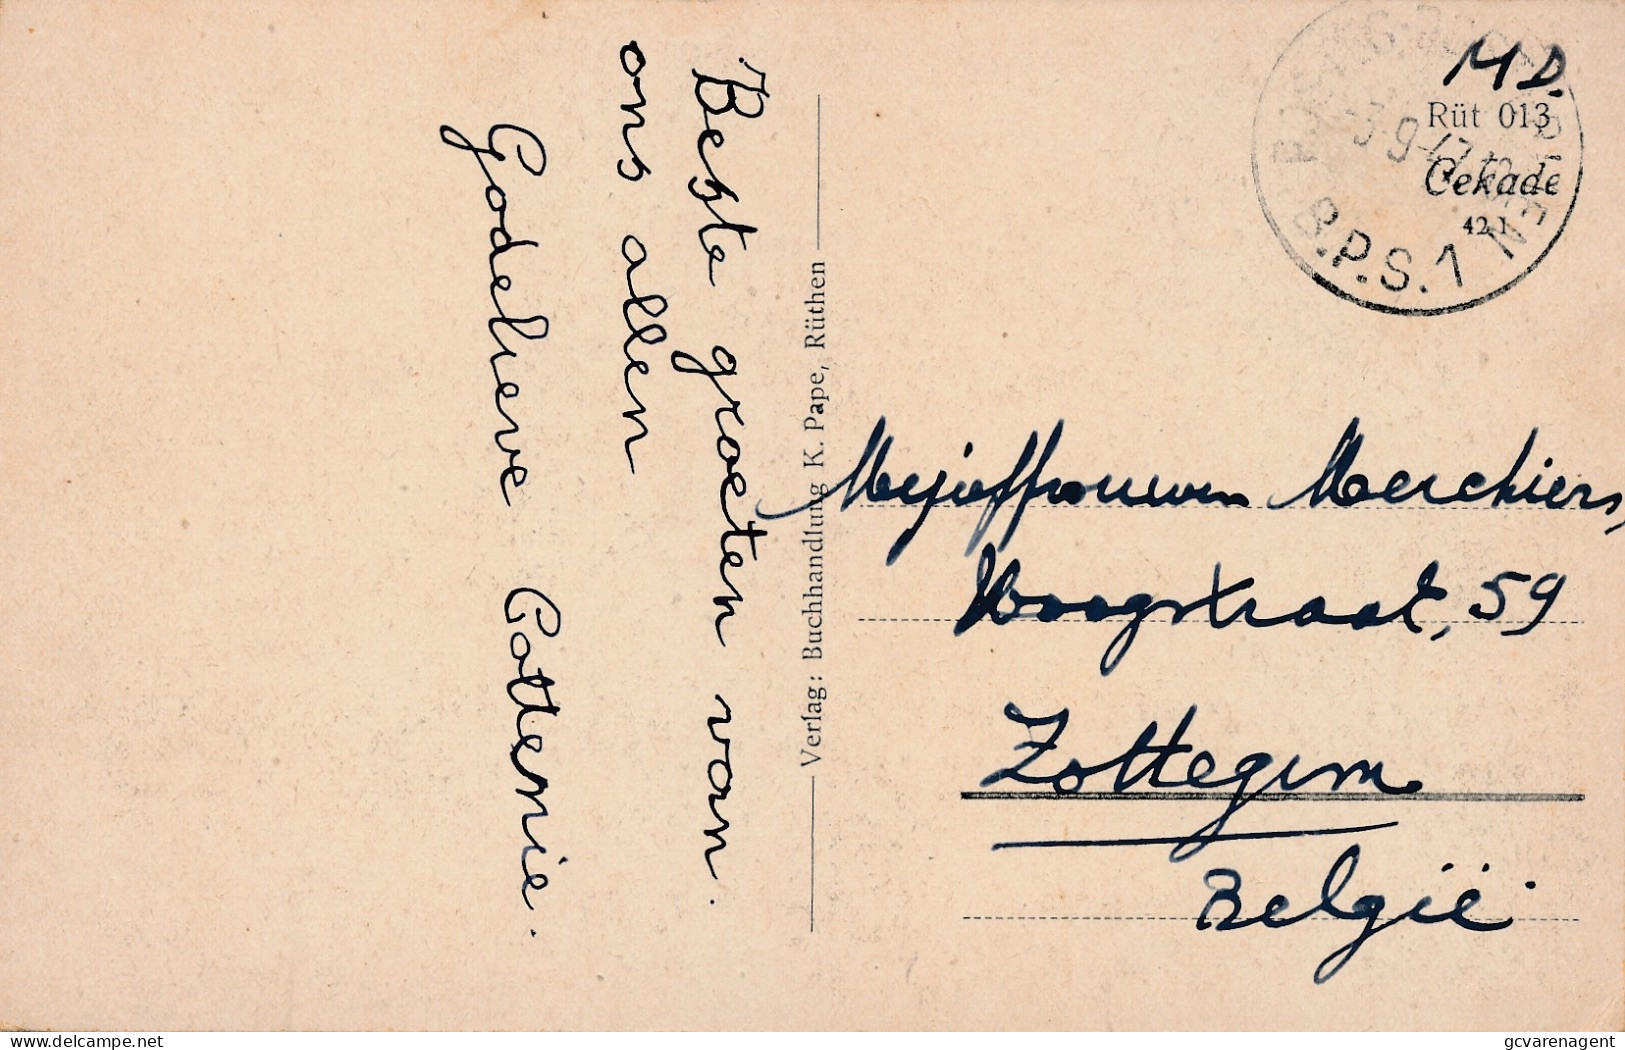 Beste groeten van
ons allen
Godelieve Cottenie.
Verlag: Buchhandlung K. Pape, Rüthen
MD.
Rüt 013
Cekade
42.1
B.P.S. 1
Mejieffrouwen Merchiers,
Hoogstraat, 59
Zottegem
België
delcampe.net
gcvarenagent